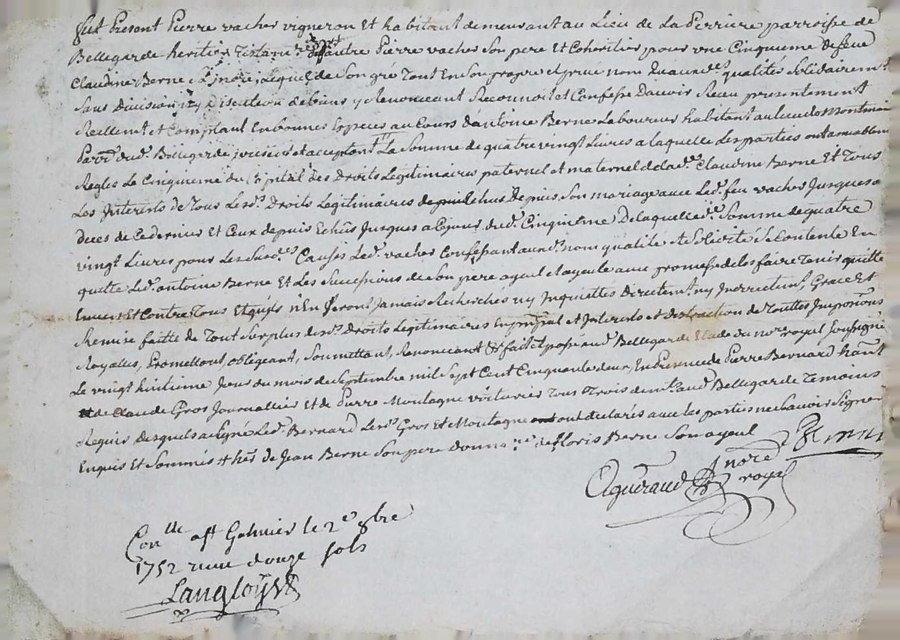 fut Present Pierre vacher vigneron Et habitant demeurant au Lieu de La Perriere parroisse de
Bellegarde heritier Testam.re d'autre Pierre vacher Son pere Et Coheritier pour une Cinquieme de feue
Claudine Berne Lequel de Son gré Tout En Son propre et privé nom Quaux d.es qualités Solidairem.t
Sans Division ny Discution de biens y Renonceant Reconnoit et Confesse Davoir Receu presentement
Reellem.t et Comptant En bonnes Especes au Cours d'antoine Berne Laboureur habitant au lieu de Montmain
Parr.e dud. Bellegarde present et acceptant La Somme de quatre vingt Livres a laquelle les parties ont amiablem.t
Regles Le Cinquieme du Capital des Droits Legitimaires paternel et maternel de lad.e Claudine Berne Et Tous
Les Interests de Tous Lesd.s Droits Legitimaires depuis Son mariage avec Led. feu vacher Jusques a
deces de Ce dernier Et Ceux depuis Echus Jusques a Ce jour dud. Cinquieme De laquelle d.e Somme de quatre
vingt Livres pour Les Susd.es Causes Led. vacher Confessant auxd. nom qualité Se Contente En
quitte Led. antoine Berne Et Les Successions de Son pere ayeul et ayeule avec promesse de les faire Tenir quitte
Envers Et Contre Tous Et quils n'En Seront Jamais Recherchés ny Inquiettes Directem.t ny Indirectem.t Grace Et
Remise faitte de Tout Surplus desd.s Droits Legitimaires En prin.pal et Interests et distraction de Touttes Impositions
Royalles, Promettant, obligeant, Soumettant, Renonceant &c fait et passé aud. Bellegarde Etude du no.re royal Soussigné
Le vingt huitieme Jour du mois de Septembre mil Sept Cent Cinquante deux En Presence de Pierre Bernard
de Claude Gros Journallier Et de Pierre Montagne voiturier Tous Trois dem.ts aud. Bellegarde Temoins
Requis Desquels a Signé Led. Bernard Lesd. Gros et Montagne ont declaré avec les parties ne Scavoir Signer
Enquis Et Sommés de Jean Berne Son pere Berne Son ayeul
Bernard
Aguiraud Nore royal
Con.lle a St Galmier le 2e 8bre
1752 recu douze sols
Langloys